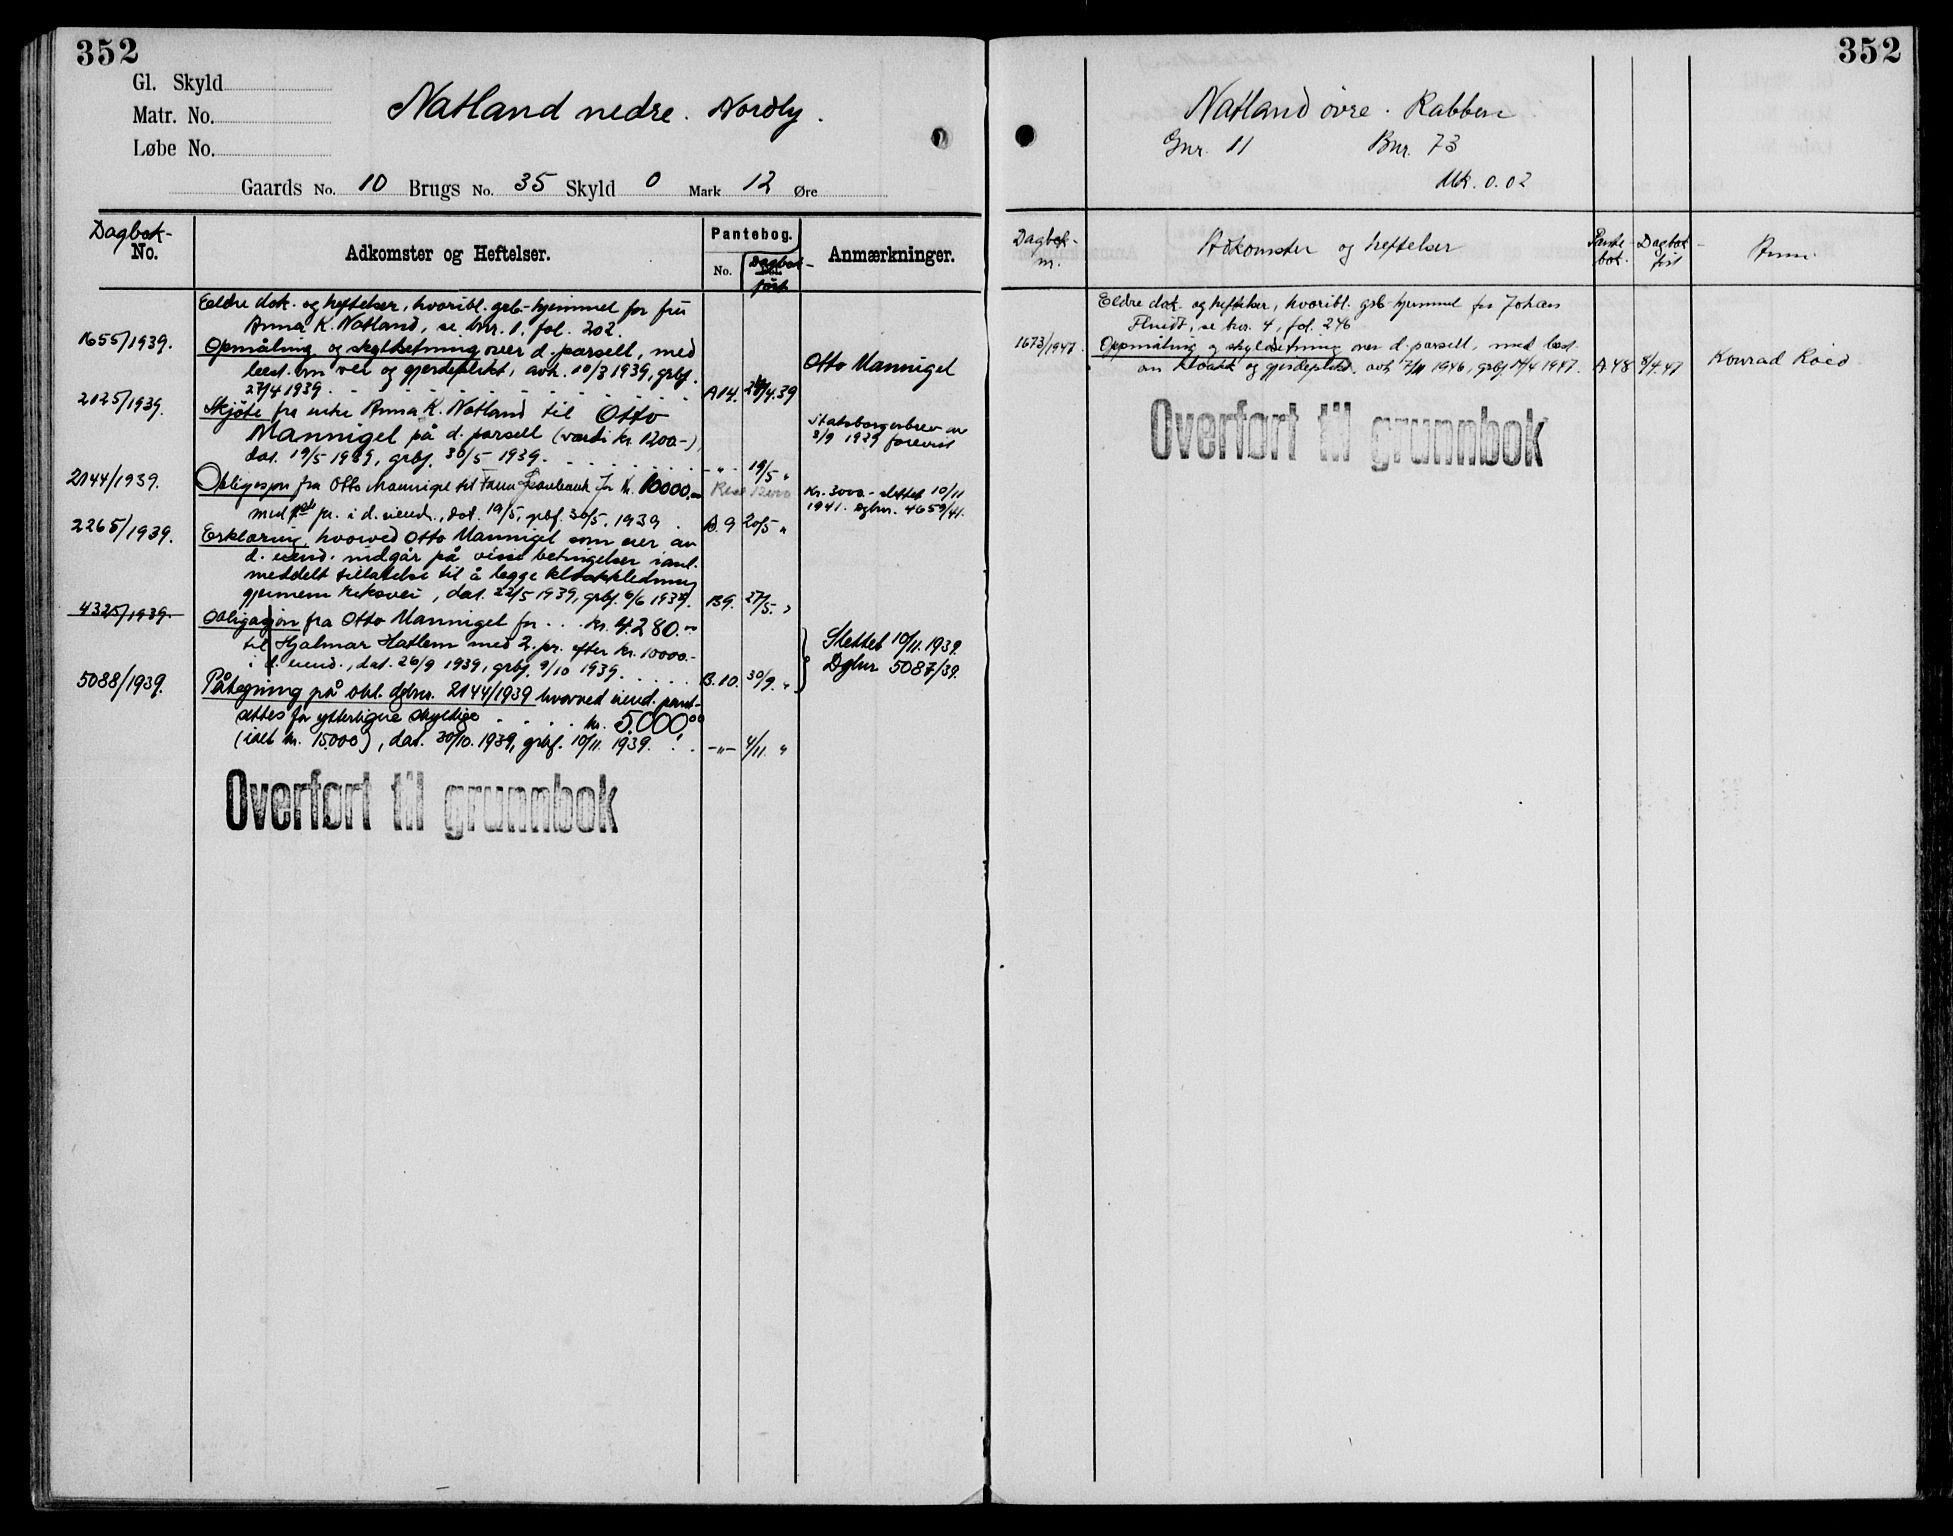 352
Gl. Skyld
Matr. No.
Løbe No.
Natland nedre. Nordly.
Gaards No. 10 Brugs No. 35 Skyld 0 Mark 12 Øre
Dagbok-
No.
Adkomster og Heftelser.
Pantebog.
No.
Dagbok-
ført
Anmærkninger.
Eldre dok. og heftelser, hvoribl. grb-hjemmel for fru
Anna K. Natland, se bnr. 1, fol. 202.
1655/1939. Opmåling og skyldsetning over d. parsell, med
best. om vei og gjerdeplikt, avh. 10/3 1939, grbf.
27/4 1939 A14. 24/4.39
Otto Mannigel
2125/1939. Skjøte fra enke Anna K. Natland til Otto
Mannigel på d. parsell (verdi kr. 1200-),
dat. 19/5 1939, grbf. 30/5 1939. -"- 19/5 "
Statsborgerbrev av
3/9 1929 forevist
2144/1939. Obligasjon fra Otto Mannigel til Fana Sparebank for kr. 10000.-
med pr. i d. eiend., dat. 19/5, grbf. 30/5. 1939. B. 9 20/5 "
Rest 12000
Kr. 3000.- slettet 10/11
1941. Dgbnr. 4659/41.
2265/1939. Erklæring hvorved Otto Mannigel som eier av
d. eiend. vidgår på visse betingelser i anl.
meddelt tillatelse til å legge kloakkledning
gjennem riksvei, dat. 22/5 1939, grbf. 6/6 1939. B9. 27/5. "
4325/1939. Obligasjon fra Otto Mannigel for . . . kr. 4.280.-
til Hjalmar Hatlem med 2. pr. efter kr. 10000.-
i d. eiend., dat. 26/9 1939, grbf. 9/10 1939. B. 10. 30/9. "
Slettet 10/11. 1939.
Dgbnr 5087/39.
5088/1939. Påtegning på obl. dgbnr. 2144/1939 hvorved eiend. pant-
settes for ytterligere skyldige . . . . kr. 5.000.00
(ialt kr. 15000), dat. 30/10. 1939, grbf. 10/11. 1939. -"- 4/11. "
Overført til grunnbok
352
Natland övre. Rabben
Gnr. 11 Bnr. 73
Mk. 0.02
Dagbok-
nr.
Adkomster og heftelser
Pante-
bok.
Dagbok-
ført
Anm.
Eldre dok. og heftelser, hvoribl. grb-hjemmel for Johan
se bnr. 4, fol. 246
1673/1947. Oppmåling og skyldsetning over d. parsell, med best.
om kloakk og gjerdeplikt. avh 7/11 1946, grbf. 14/4 1947. A.48 8/4.47
Konrad Roed
Overført til grunnbok